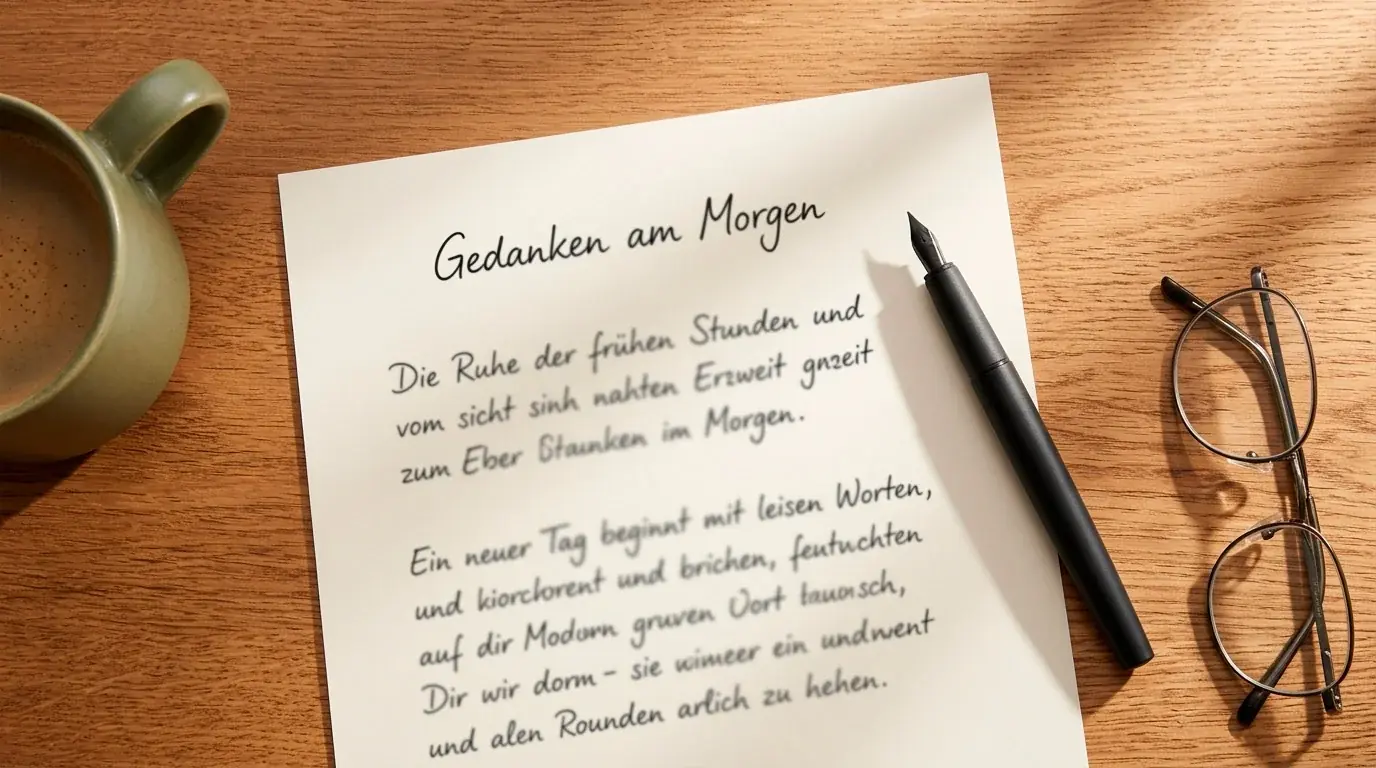 Gedanken am Morgen
Die Ruhe der frühen Stunden und
vom sicht sinh nahten Erzweit gnzeit
zum Eber Staunken im Morgen.
Ein neuer Tag beginnt mit leisen Worten,
und kiorchorent und brichen, feutuchten
auf dir Modurn gruven Oort
Dir wir dorm – sie ein undwent
und alen Rounden artich zu hehen.